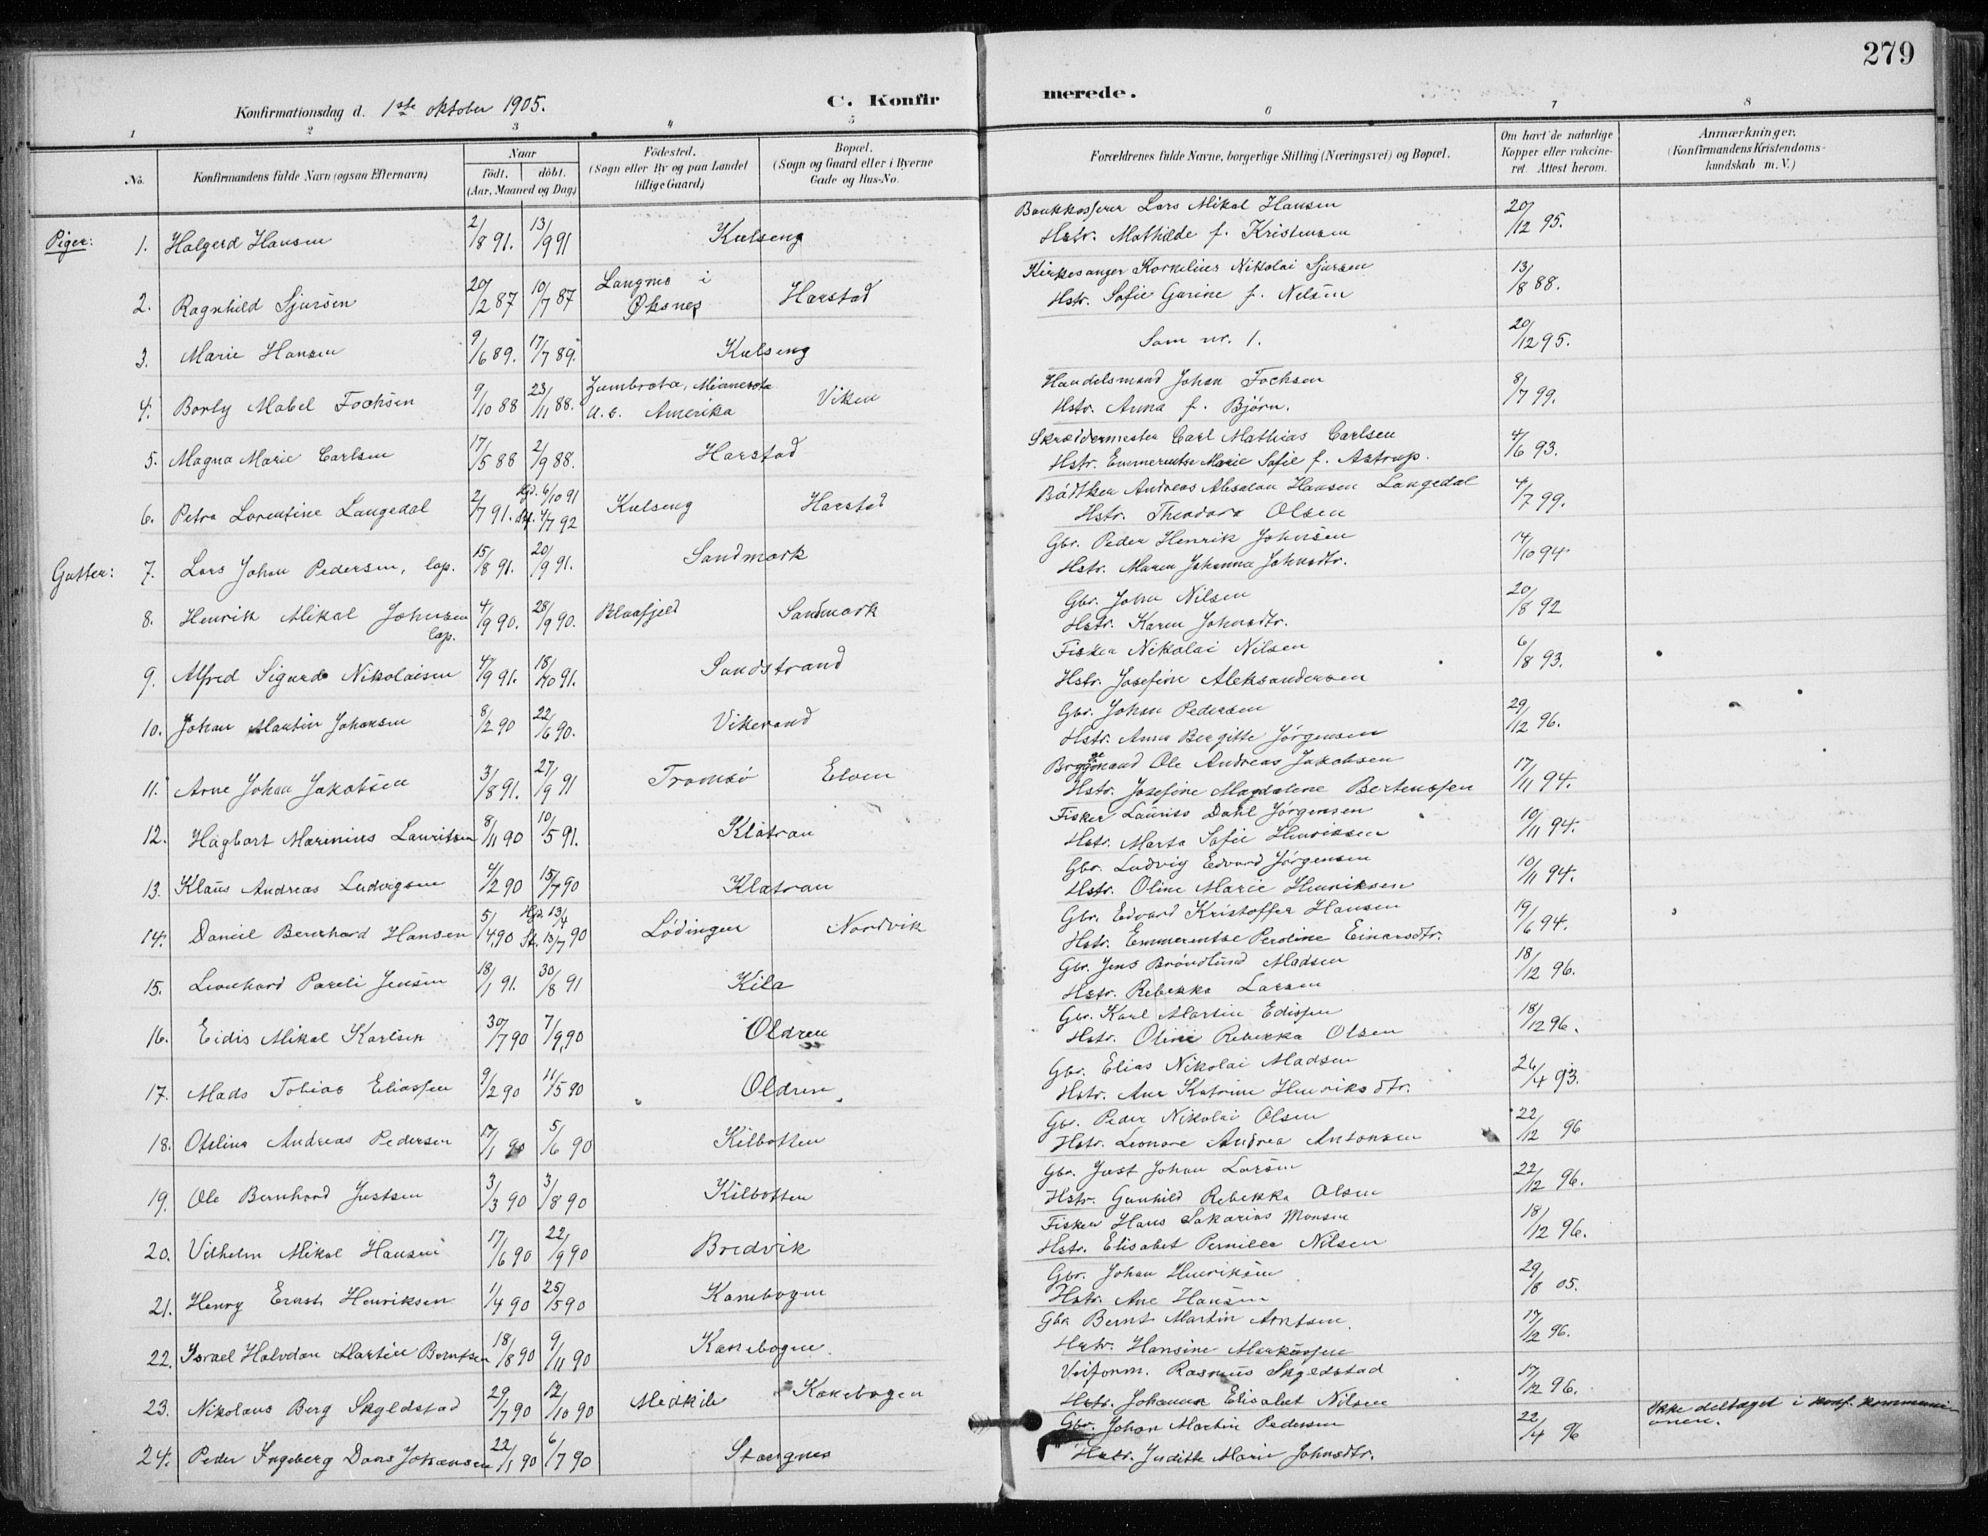 279
Konfirmationsdag d. 1ste oktober 1905.
C. Konfirmerede.
1 2 3 4 5 6 7 8
No.
Konfirmandens fulde Navn (ogsaa Efternavn)
Naar
födt. döbt.
(Aar, Maaned og Dag)
Födested.
(Sogn eller By og paa Landet
tillige Gaard)
Bopæl.
(Sogn og Gaard eller i Byerne
Gade og Hus-No.
Forældrenes fulde Navne, borgerlige Stilling (Næringsvei) og Bopæl.
Om havt de naturlige
Kopper eller vakcine-
ret. Attest herom.
Anmærkninger.
(Konfirmandens Kristendoms-
kundskab m. V.)
Piger: 1. Halgerd Hansen 2/8 91. 13/9 91 Kulseng Bankkasserer Lars Mikal Hansen 20/12 95.
Hstr. Mathilde f. Kristensen
2. Ragnhild Sjursen 20/2 87 10/7 87 Langnes i Øksnes Harstad Kirkesanger Kornelius Nikolai Sjursen 13/8 88.
Hstr. Sofie Garine f. Nilsen
3. Marie Hansen 9/6 89. 17/7 89. Kulseng Som nr. 1. 20/12 95.
4. Borly Mabel Fochsen 9/10 88 23/11 88. Zumbrota, Minnesota Viken Handelsmand Johan Fochsen 8/7 99.
Amerika Hstr. Anna f. Bjørn.
5. Magna Marie Carlsen 17/5 88 2/9 88. Harstad Skræddermester Carl Mathias Carlsen 4/6 93.
Hstr. Emmerentse Marie Sofie f. Astrup.
6. Petra Lorentine Langedal 2/7 91. Hjd. 6/10 91 Stf. 4/7 92 Kulseng Harstad Bådtken Andreas Absalon Hansen Langedal 4/7 99.
Hstr. Theodora Olsen
Gutter: 7. Lars Johan Pedersen, lap. 15/8 91. 20/9 91. Sandmark Gbr. Peder Henrik Johnsen 14/10 94
Hstr. Maren Johanna Johnsdtr.
8. Henrik Mikal Johnsen lap. 4/9 90. 28/9 90. Blaafjeld Sandmark Gbr. John Nilsen 20/8 92
Hstr. Karen Johnsdtr.
9. Alfred Sigurd Nikolaisen 4/9 91. 18/10 91. Sandstrand Fisker Nikolai Nilsen 6/8 93.
Hstr. Josefine Aleksandersen
10. Johan Martin Johansen 8/2 90 22/6 90. Vikerand Gbr. Johan Pedersen 29/12 96.
Hstr. Anna Bergitte Jørgensen
11. Arne Johan Jakobsen 3/8 91. 27/9 91 Tromsø Elven Ole Andreas Jakobsen 17/11 94.
Hstr. Josefine Magdalene Bertenssen
12. Hagbart Marinius Lauritsen 8/11 90 10/5 91. Klåtran Fisker Lauriss Dahl Jörgensen 10/11 94.
Hstr. Marta Sofie Henriksen
13. Klaus Andreas Ludvigsen 4/2 90 13/7 90 Klatran Gbr. Ludvig Edvard Jörgensen 10/11 94.
Hstr. Oline Marie Henriksen
14. Daniel Bernhard Hansen 5/4 90 Hjd. 13/4 St. 13/7 90 Lödingen Nordvik Gbr. Edvard Kristoffer Hansen 19/6 94.
Hstr. Emmerentse Peroline Einarsdtr.
15. Leonhard Pareli Jensen 18/1 91. 30/8 91 Kila Gbr. Jens Bröndlund Madsen 18/12 96.
Hstr. Rebekka Larsen
16. Eidis Mikal Karlsen 30/7 90 7/9 90 Oldren Gbr. Karl Martin Edissen 18/12 96.
Hstr. Oline Rebekka Olsen
17. Mads Tobias Eliassen 9/2 90 11/5 90 Oldren Gbr. Elias Nikolai Madsen 26/4 93.
Hstr. Ane Katrine Henriksdtr.
18. Otelius Andreas Pedersen 17/1 90 5/6 90 Kilbotten Gbr. Peder Nikolai Olsen 22/12 96
Hstr. Leonore Andrea Antonsen
19. Ole Bernhard Justsen 3/3 90 3/8 90 Kilbotten Gbr. Just Johan Larsen 22/12 96.
Hstr. Gunhild Rebekka Olsen
20. Vilhelm Mikal Hansen 17/6 90 22/9 90 Bredvik Fisker Hans Sakarias Monsen 18/12 96.
Hstr. Elisabet Pernille Nilsen
21. Henry Ernst Henriksen 1/4 90 25/5 90 Kanebogen Gbr. Johan Henriksen 29/8 05.
Hstr. Ane Hansen
22. Israel Halvdan Martin Berntsen 18/8 90 9/11 90 Kanebogen Gbr. Bernt Martin Arntsen. 17/12 96.
Hstr. Hansine Markussen
23. Nikolaus Berg Skyldstad 29/7 90 12/10 90 Medkila Kanebogen Veiform. Rasmus Skyldstad 17/12 96.
Hstr. Johanna Elisabet Nilsen
24. Peder Ingeberg Dans Johansen 22/1 90 6/7 90 Stangnes Gbr. Johan Martin Pedersen 22/4 96 Ikke deltaget i konf. kommunionen.
Hstr. Judith Marie Johnsdtr.